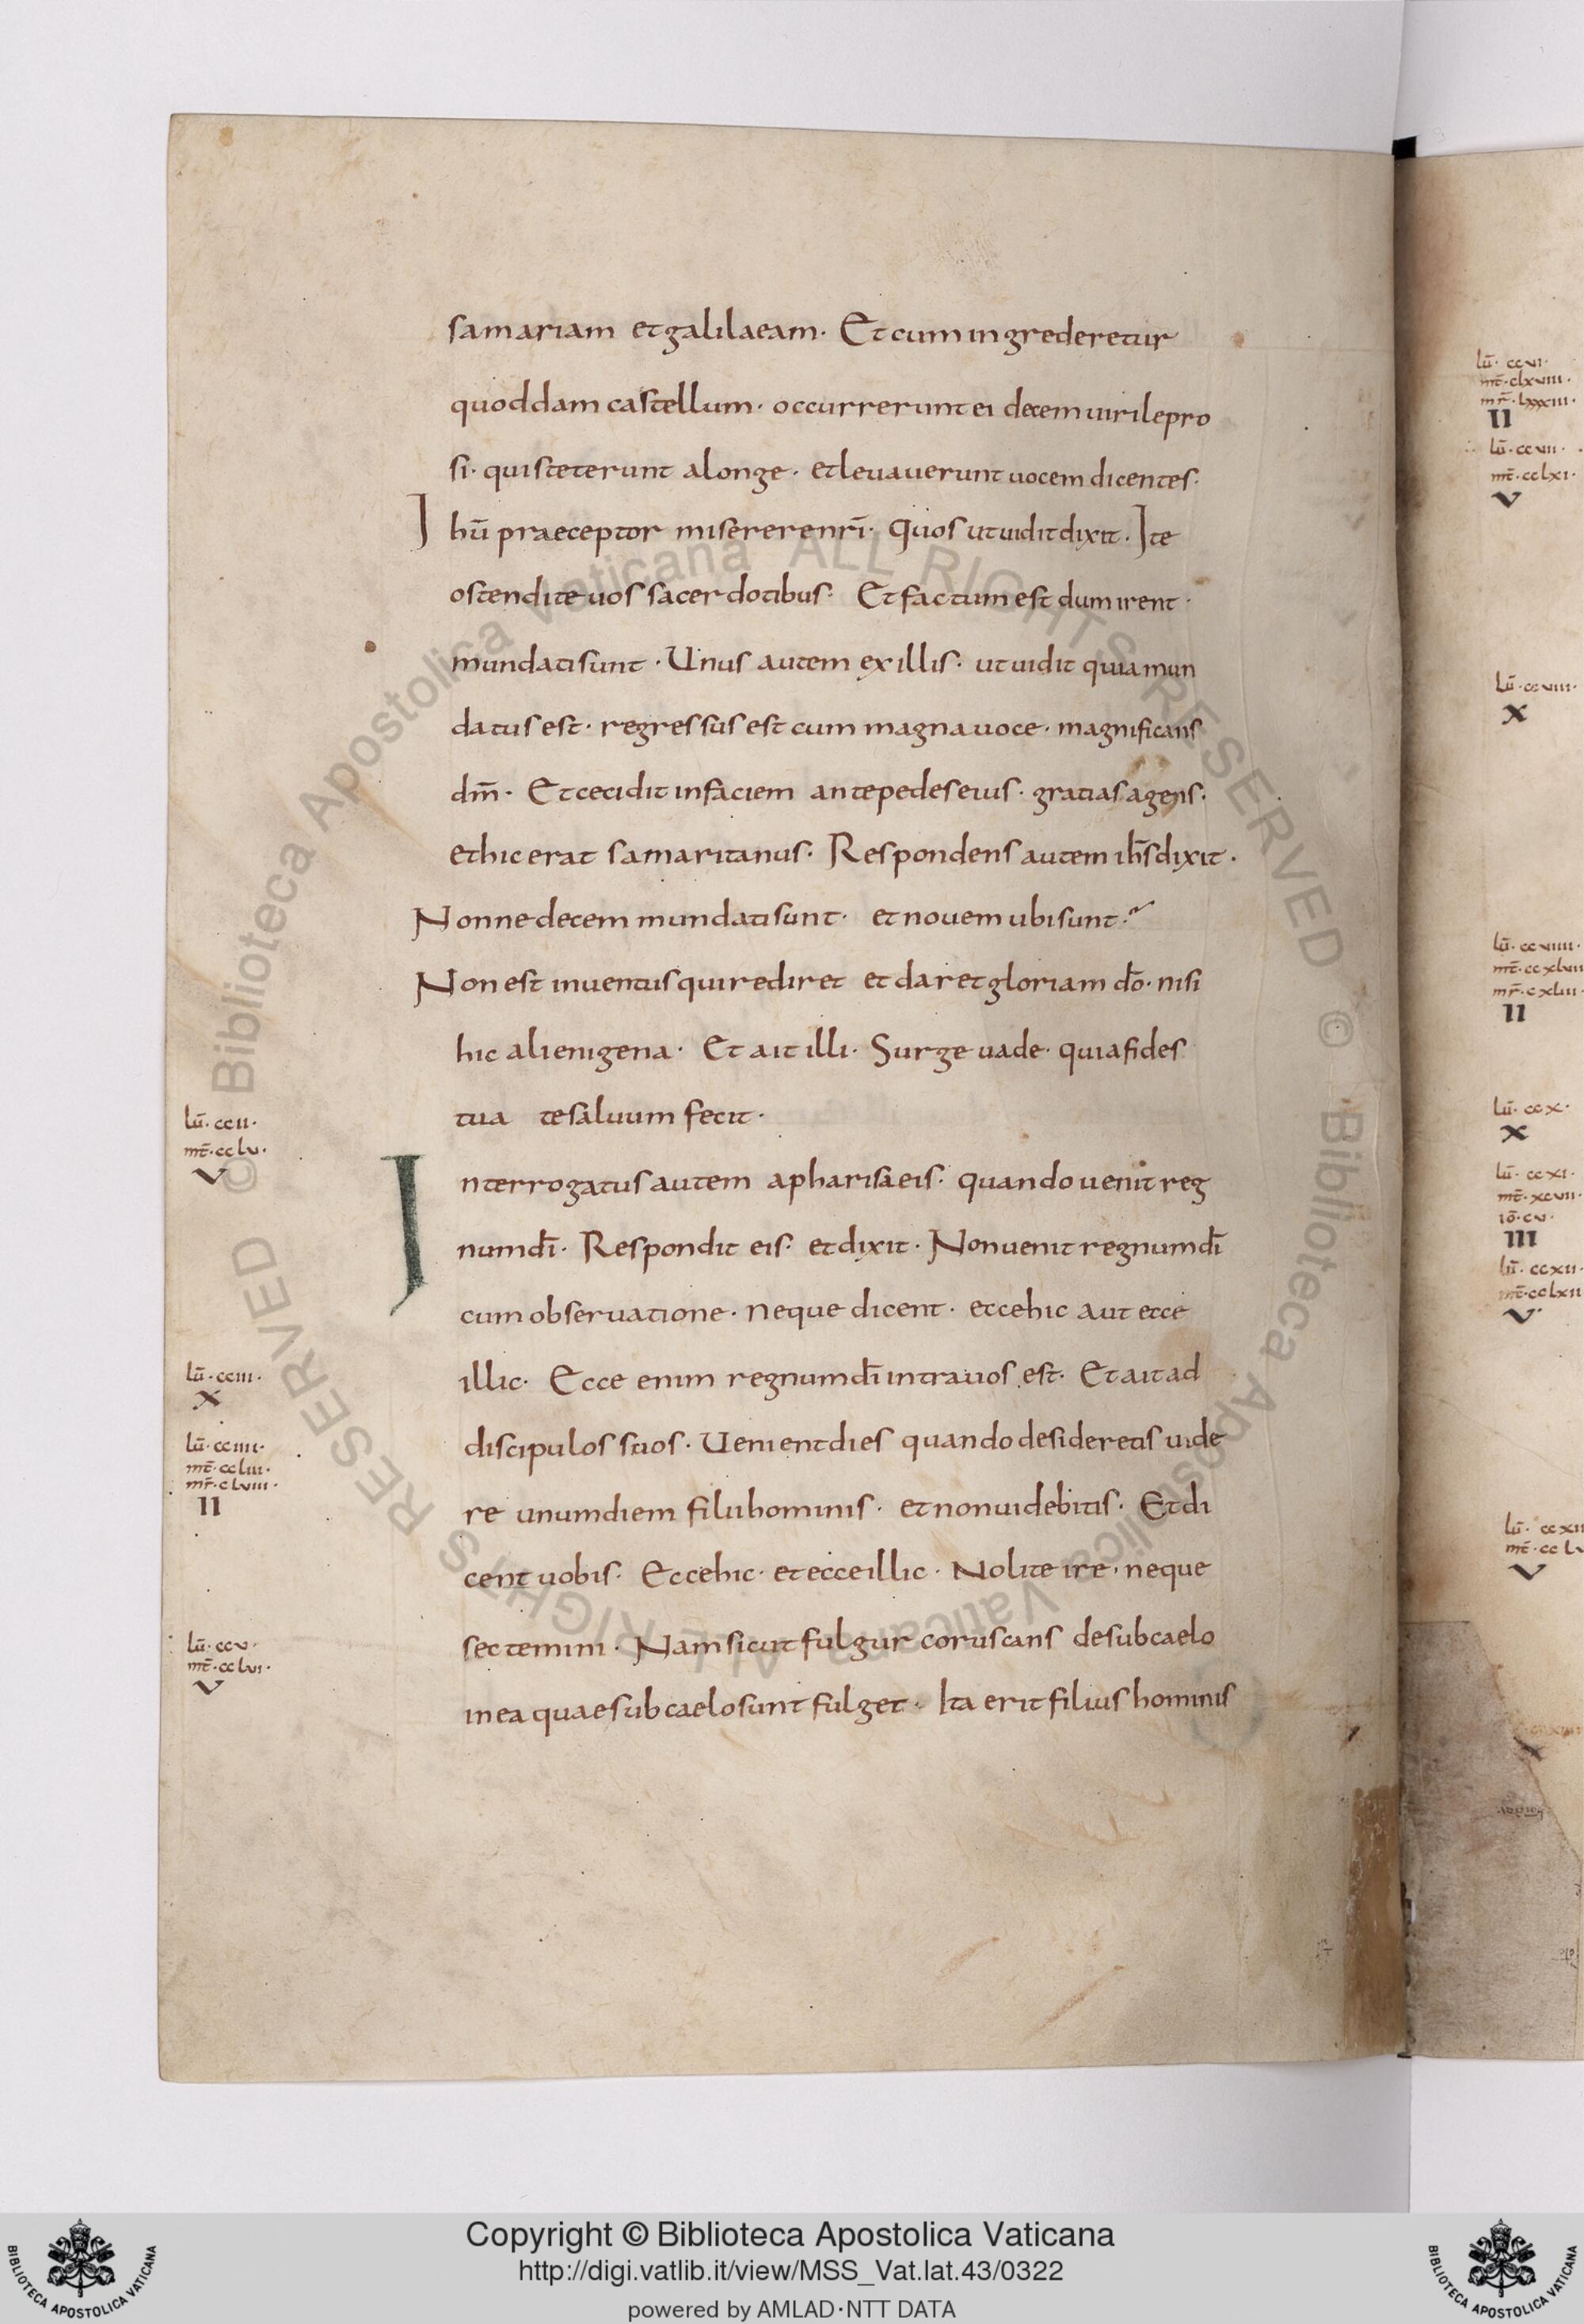 samariam et galilaeam· Et cum ingrederetur
quoddam castellum· occurrerunt ei decem uiri lepro
si· qui steterunt a longe· et leuauerunt uocem dicentes·
Ihū praeceptor miserere nrī· Quos ut uidit dixit· Ite
ostendite uos sacerdotibus· Et factum est dum irent·
mundati sunt· Unus autem ex illis· ut uidit quia mun
datus est· regressus est cum magna uoce· magnificans
dm̄· Et cecidit in faciem ante pedes eius· gratias agens·
et hic erat samaritanus· Respondens autem ihs̄ dixit·
Nonne decem mundati sunt· et nouem ubi sunt·
Non est inuentus qui rediret et daret gloriam dō· nisi
hic alienigena· Et ait illi· Surge uade· quia fides
tua te saluum fecit·
Interrogatus autem a pharisaeis· quando uenit reg
num dī· Respondit eis· et dixit· Non uenit regnum dī
cum obseruatione· neque dicent· ecce hic aut ecce
illic· Ecce enim regnum dī intra uos est· Et ait ad
discipulos suos· Uenient dies quando desideretis uide
re unum diem filii hominis· et non uidebitis· Et di
cent uobis· Ecce hic· et ecce illic· Nolite ire· neque
sectemini· Nam sicut fulgur coruscans de sub caelo
in ea quae sub caelo sunt fulget· Ita erit filius hominis
lū· ccii·
mt̄· cclv·
V
lū· cciii·
X
lū· cciiii·
mt̄· ccliii·
mr̄· clviii·
II
lū· ccv·
mt̄· cclvi·
V
lū· ccvi·
mt̄· clxviii·
mr̄· lxxxiii·
II
lū· ccvii·
mt̄· cclxi·
V
lū· ccviii·
X
lū· ccviiii·
mr̄· cxliii·
II
lū· ccx·
X
lū· ccxi·
mt̄· xcvii·
iō· cv·
III
lū· ccxii·
V
V
© Biblioteca Apostolica Vaticana ALL RIGHTS RESERVED
© Biblioteca Apostolica Vaticana ALL RIGHTS RESERVED
Copyright © Biblioteca Apostolica Vaticana
http://digi.vatlib.it/view/MSS_Vat.lat.43/0322
powered by AMLAD·NTT DATA
BIBLIOTECA APOSTOLICA VATICANA
BIBLIOTECA APOSTOLICA VATICANA